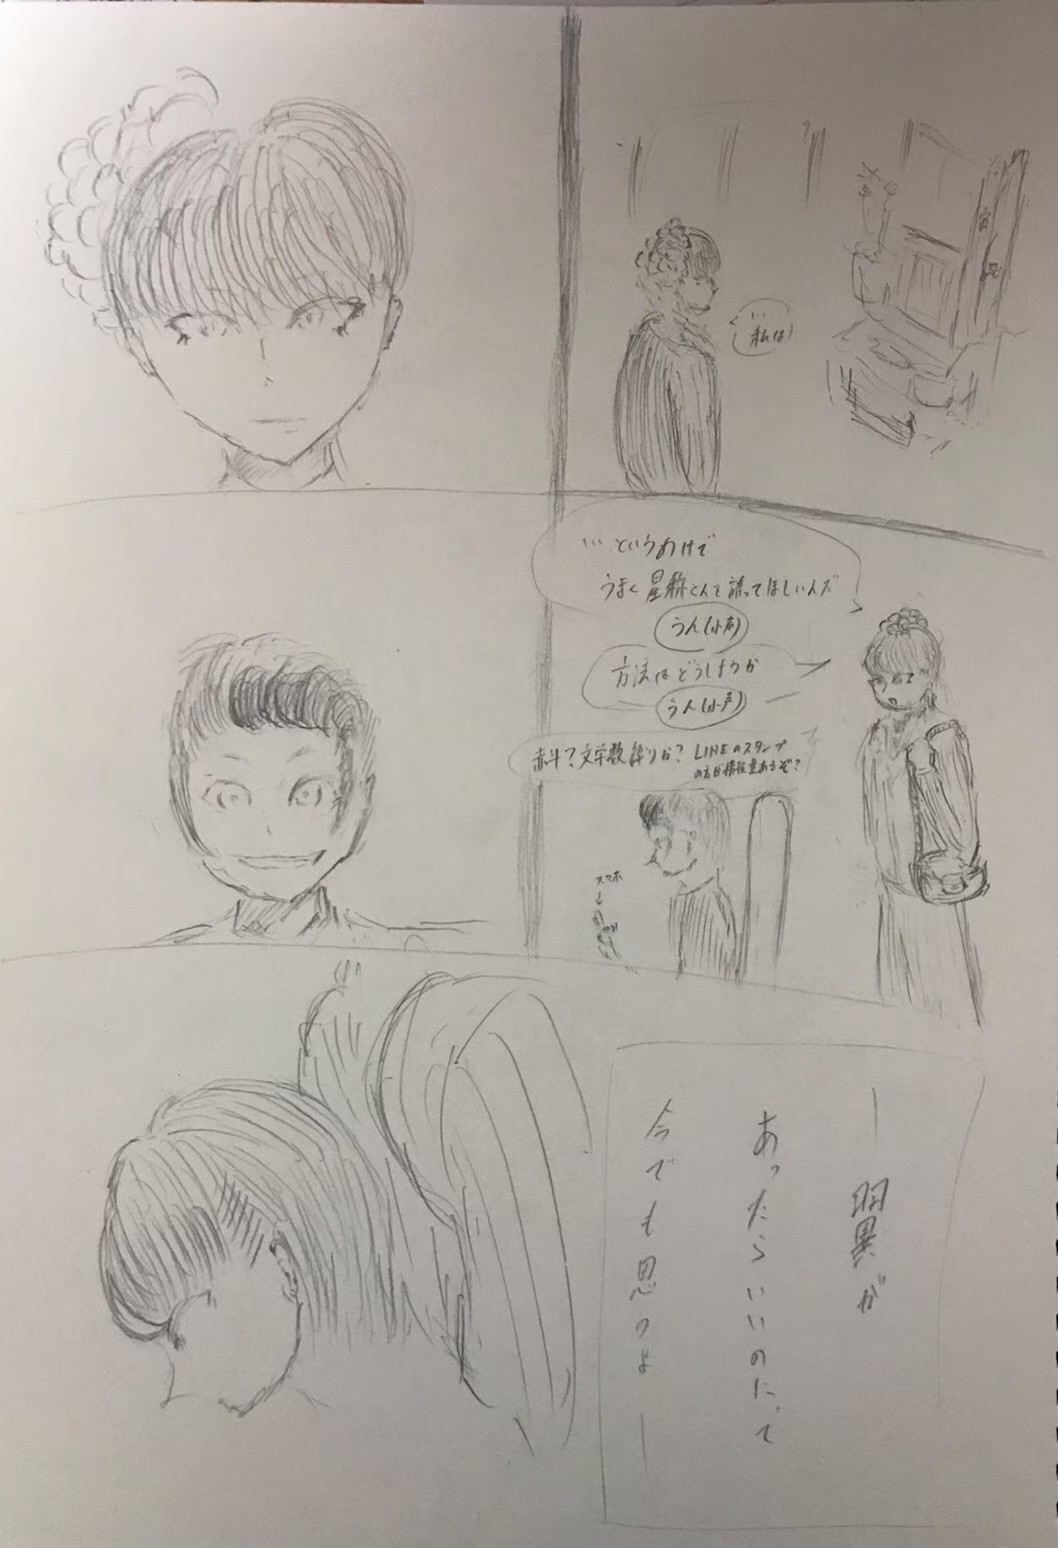 …私は
…というわけで
うまく星弥くんを誘ってほしいんだ
うん(小声)
方法はどうしようか
うん(小声)
赤斗?文学散歩りか? LINEのスタンプ
の方が積極あるぞ?
スマホ
↓
―翼が
あったらいいのにって
今でも思うよ―